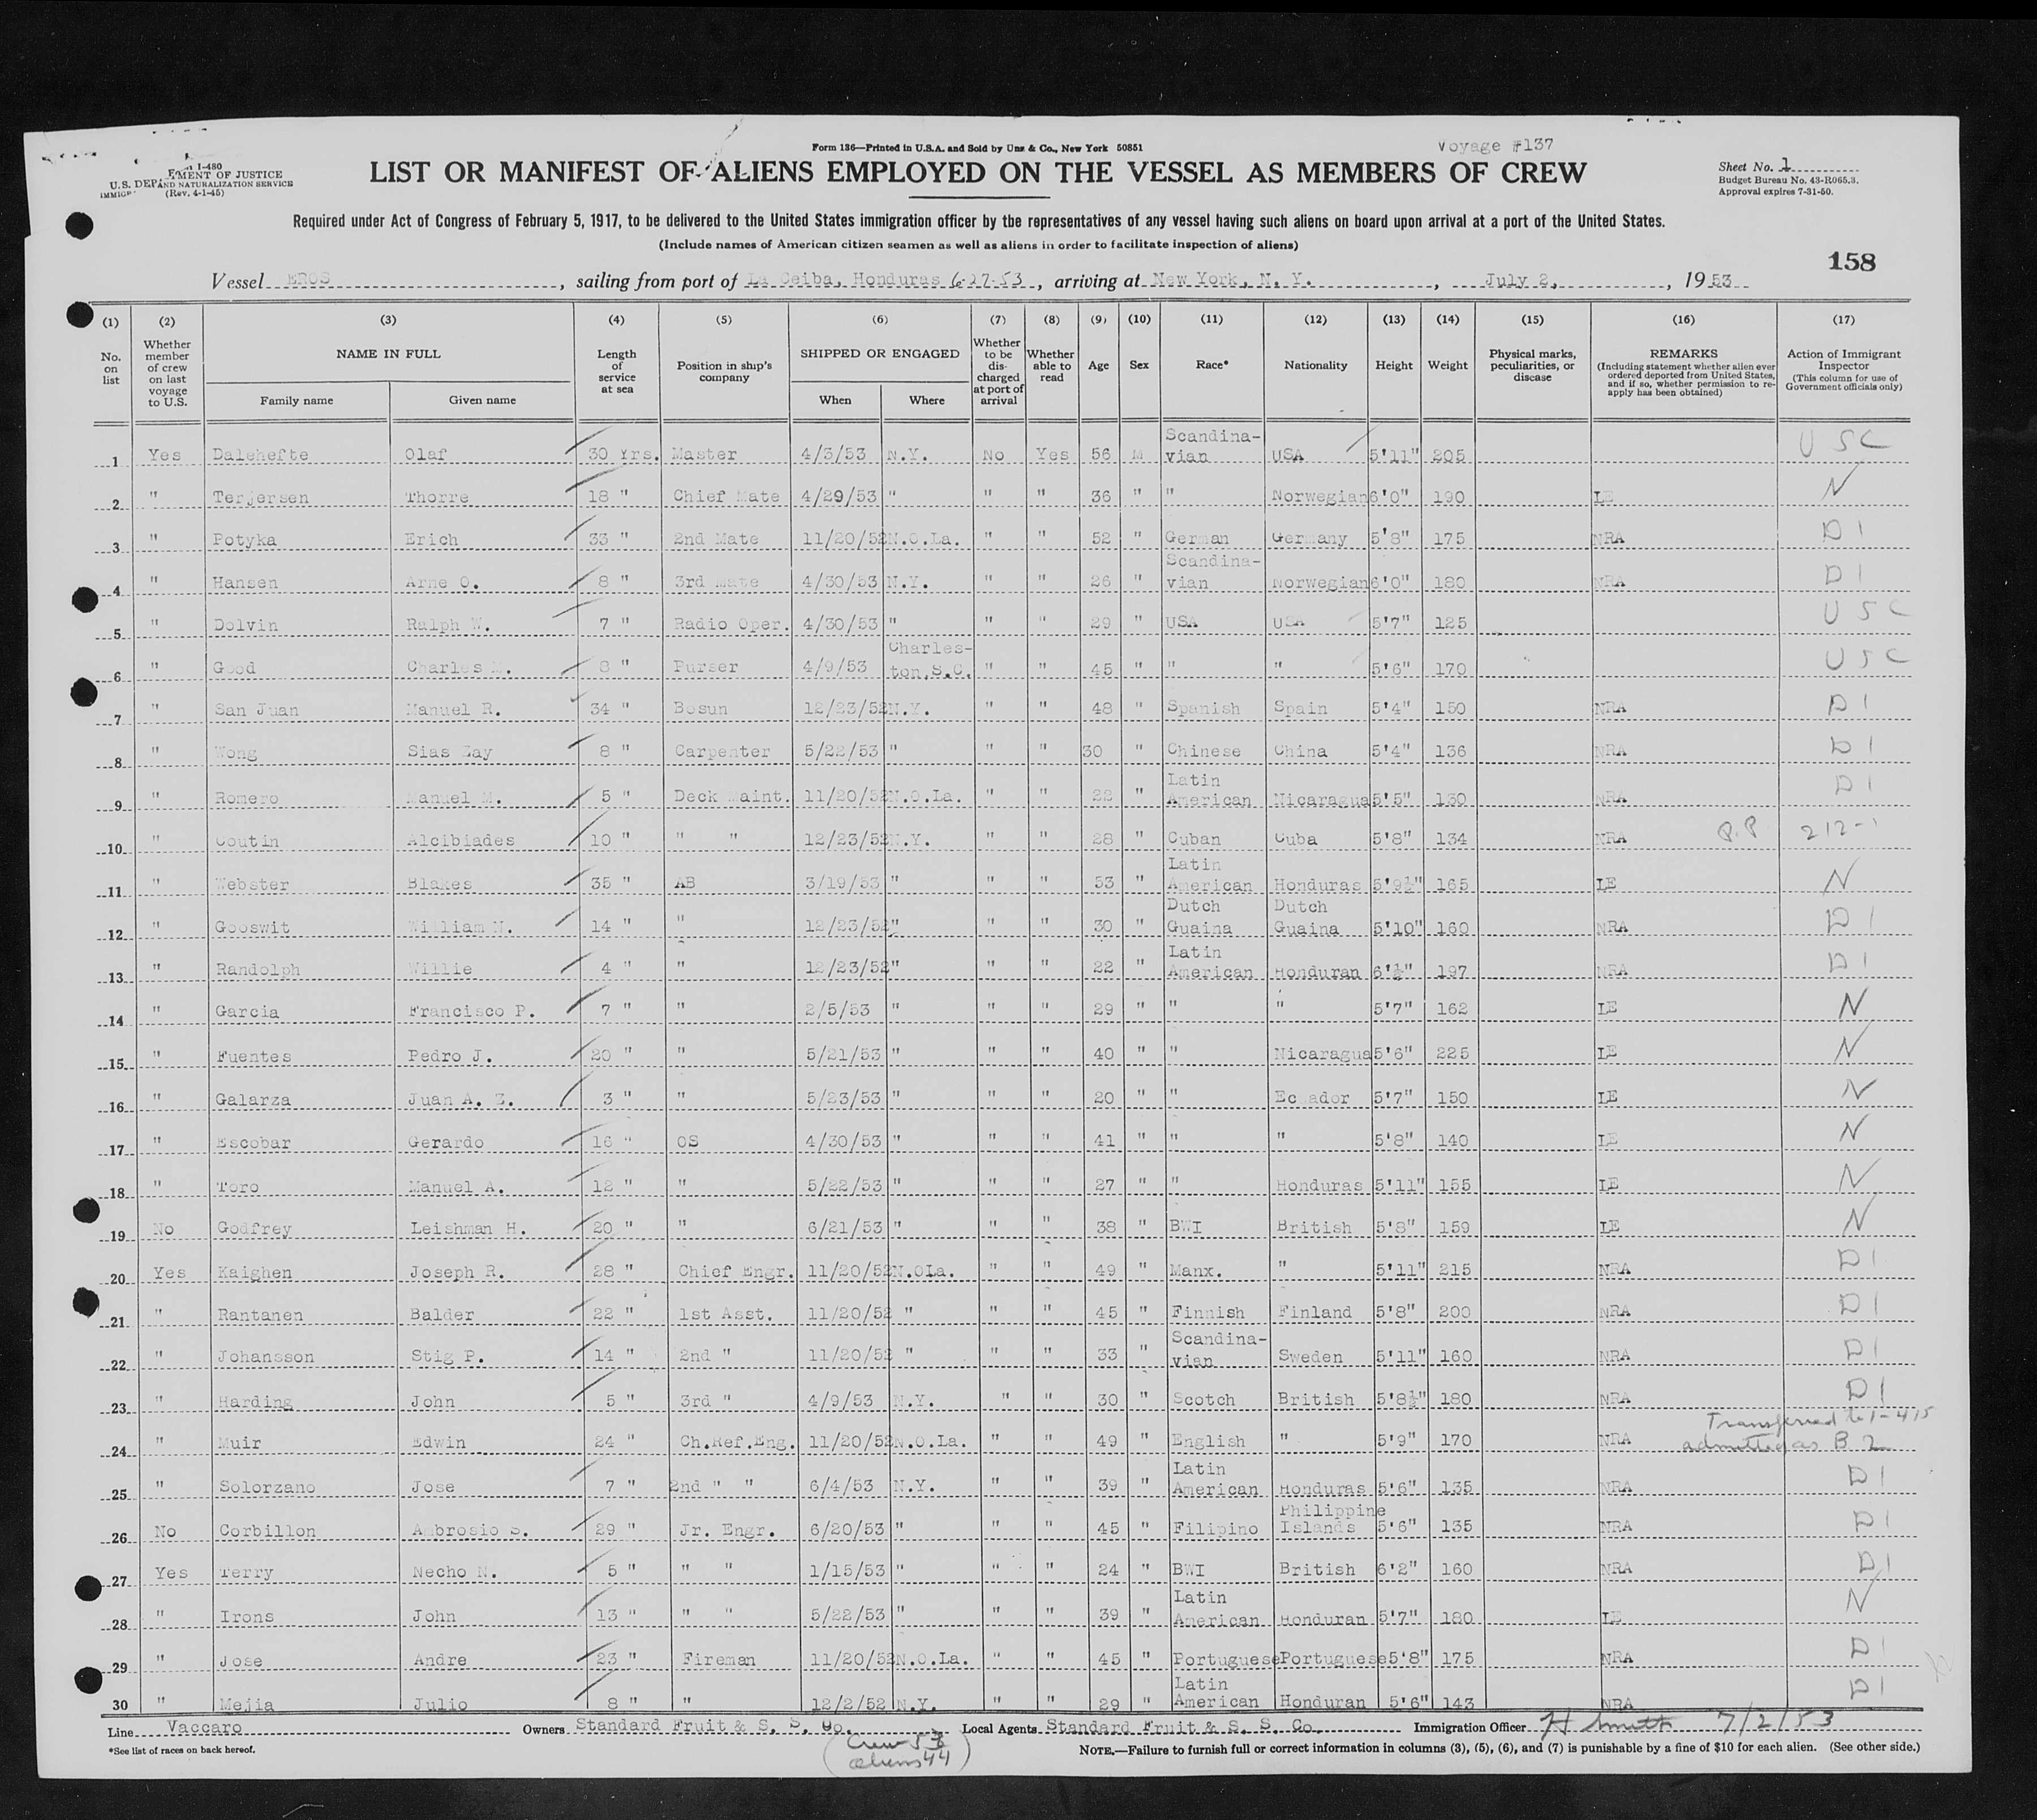 Form 136—Printed in U.S.A. and Sold by Unz & Co., New York 50851
Voyage #137
I-480
U.S. DEPARTMENT OF JUSTICE
AND NATURALIZATION SERVICE
(Rev. 4-1-45)
LIST OR MANIFEST OF ALIENS EMPLOYED ON THE VESSEL AS MEMBERS OF CREW
Sheet No. 1
Budget Bureau No. 43-R065.3.
Approval expires 7-31-50.
Required under Act of Congress of February 5, 1917, to be delivered to the United States immigration officer by the representatives of any vessel having such aliens on board upon arrival at a port of the United States.
(Include names of American citizen seamen as well as aliens in order to facilitate inspection of aliens)
158
Vessel EROS, sailing from port of La Ceiba, Honduras 6-27-53, arriving at New York, N. Y., July 2, 1953
(1) (2) (3) (4) (5) (6) (7) (8) (9) (10) (11) (12) (13) (14) (15) (16) (17)
No. on list Whether member of crew on last voyage to U.S. NAME IN FULL Family name Given name Length of service at sea Position in ship's company SHIPPED OR ENGAGED When Where Whether to be discharged at port of arrival Whether able to read Age Sex Race* Nationality Height Weight Physical marks, peculiarities, or disease REMARKS (Including statement whether alien ever ordered deported from United States, and if so, whether permission to re-apply has been obtained) Action of Immigrant Inspector (This column for use of Government officials only)
1 Yes Dalehefte Olaf 30 Yrs. Master 4/3/53 N.Y. No Yes 56 M Scandina-vian USA 5'11" 205 USC
2 " Terjersen Thorre 18 " Chief Mate 4/29/53 " " " 36 " " Norwegian 6'0" 190 LE N
3 " Potyka Erich 33 " 2nd Mate 11/20/52 N.O.La. " " 52 " German Germany 5'8" 175 NRA D1
4 " Hansen Arne O. 8 " 3rd Mate 4/30/53 N.Y. " " 26 " Scandina-vian Norwegian 6'0" 180 NRA D1
5 " Dolvin Ralph W. 7 " Radio Oper. 4/30/53 " " " 29 " USA USA 5'7" 125 USC
6 " Good Charles M. 8 " Purser 4/9/53 Charles-ton,S.C. " " 45 " " " 5'6" 170 USC
7 " San Juan Manuel R. 34 " Bosun 12/23/52 N.Y. " " 48 " Spanish Spain 5'4" 150 NRA D1
8 " Wong Sias 8 " Carpenter 5/22/53 " " " 30 " Chinese China 5'4" 136 NRA D1
9 " Romero Manuel M. 5 " Deck Maint. 11/20/52 N.O.La. " " 22 " Latin American Nicaragua 5'5" 130 NRA D1
10 " Coutin Alcibiades 10 " " " 12/23/52 N.Y. " " 28 " Cuban Cuba 5'8" 134 NRA P.P 212-1
11 " Webster Blakes 35 " AB 3/19/53 " " " 53 " Latin American Honduras 5'9½" 165 LE N
12 " Gooswit William N. 14 " " 12/23/52 " " " 30 " Dutch Guaina Dutch Guaina 5'10" 160 NRA D1
13 " Randolph Willie 4 " " 12/23/52 " " " 22 " Latin American Honduran 6'½" 197 NRA D1
14 " Garcia Francisco P. 7 " " 2/5/53 " " " 29 " " " 5'7" 162 LE N
15 " Fuentes Pedro J. 20 " " 5/21/53 " " " 40 " " Nicaragua 5'6" 225 LE N
16 " Galarza Juan A. Z. 3 " " 5/23/53 " " " 20 " " Ecuador 5'7" 150 LE N
17 " Escobar Gerardo 16 " OS 4/30/53 " " " 41 " " " 5'8" 140 LE N
18 " Toro Manuel A. 12 " " 5/22/53 " " " 27 " " Honduras 5'11" 155 LE N
19 No Godfrey Leishman H. 20 " " 6/21/53 " " " 38 " BWI British 5'8" 159 LE N
20 Yes Kaighen Joseph R. 28 " Chief Engr. 11/20/52 N.OLa. " " 49 " Manx. " 5'11" 215 NRA D1
21 " Rantanen Balder 22 " 1st Asst. 11/20/52 " " " 45 " Finnish Finland 5'8" 200 NRA D1
22 " Johansson Stig P. 14 " 2nd " 11/20/52 " " " 33 " Scandina-vian Sweden 5'11" 160 NRA D1
23 " Harding John 5 " 3rd " 4/9/53 N.Y. " " 30 " Scotch British 5'8½" 180 NRA D1
24 " Muir Edwin 24 " Ch.Ref.Eng. 11/20/52 N.O.La. " " 49 " English " 5'9" 170 NRA Transferred to 1-415 admitted as B 2
25 " Solorzano Jose 7 " 2nd " " 6/4/53 N.Y. " " 39 " Latin American Honduras 5'6" 135 NRA D1
26 No Corbillon Ambrosio S. 29 " Jr. Engr. 6/20/53 " " " 45 " Filipino Philippine Islands 5'6" 135 NRA D1
27 Yes Terry Necho N. 5 " " " 1/15/53 " " " 24 " BWI British 6'2" 160 NRA D1
28 " Irons John 13 " " " 5/22/53 " " " 39 " Latin American Honduran 5'7" 180 LE N
29 " Jose Andre 23 " Fireman 11/20/52 N.O.La. " " 45 " Portuguese Portuguese 5'8" 175 NRA D1
30 " Mejia Julio 8 " " 12/2/52 N.Y. " " 29 " Latin American Honduran 5'6" 143 NRA D1
Line Vaccaro Owners Standard Fruit & S. S. Co. Local Agents Standard Fruit & S. S. Co. Immigration Officer H Smith 7/2/53
*See list of races on back hereof.
Crew 53
aliens 44
NOTE.—Failure to furnish full or correct information in columns (3), (5), (6), and (7) is punishable by a fine of $10 for each alien. (See other side.)